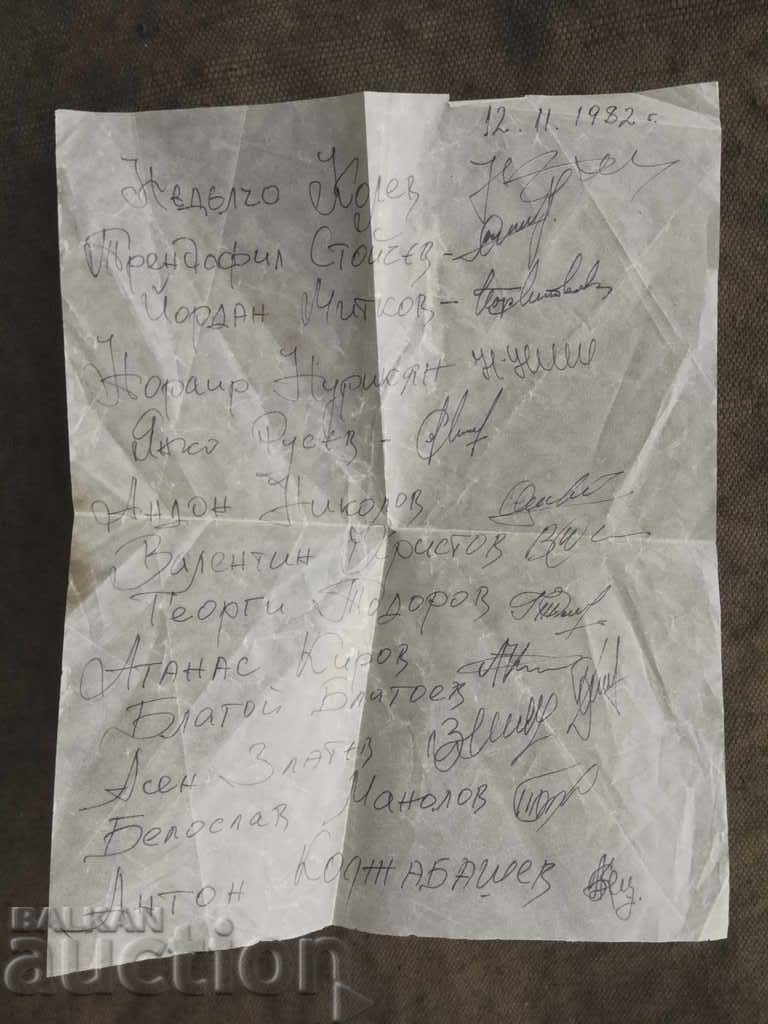 12.11.1982 г.
Недълчо Колев
Трендафил Стойчев -
Йордан Митков -
Нораир Нурикян
Янко Русев -
Андон Николов
Валентин Христов
Георги Тодоров
Атанас Киров
Благой Благоев
Асен Златев
Белослав Манолов
Антон Коджабашев
BALKAN
auction